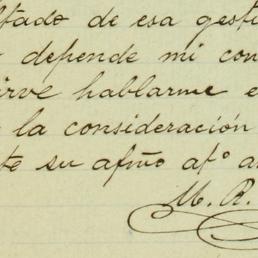 ltado de esa gesti
depende mi con
irve hablarme e
la consideración
te su afmo afº a
M. R.